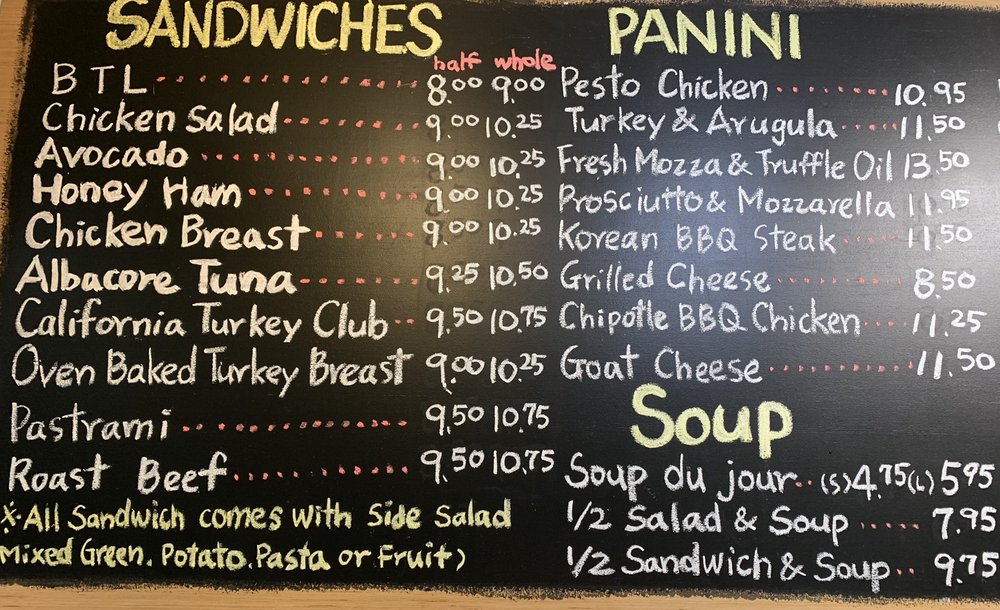 SANDWICHES
half whole
BTL 8.00 9.00
Chicken Salad 9.00 10.25
Avocado 9.00 10.25
Honey Ham 9.00 10.25
Chicken Breast 9.00 10.25
Albacore Tuna 9.25 10.50
California Turkey Club 9.50 10.75
Oven Baked Turkey Breast 9.00 10.25
Pastrami 9.50 10.75
Roast Beef 9.50 10.75
※All Sandwich comes with Side Salad
Mixed Green. Potato. Pasta or Fruit)
PANINI
Pesto Chicken 10.95
Turkey & Arugula 11.50
Fresh Mozza & Truffle Oil 13.50
Prosciutto & Mozzarella 11.95
Korean BBQ Steak 11.50
Grilled Cheese 8.50
Chipotle BBQ Chicken 11.25
Goat Cheese 11.50
Soup
Soup du jour (S) 4.75 (L) 5.95
1/2 Salad & Soup 7.95
1/2 Sandwich & Soup 9.75